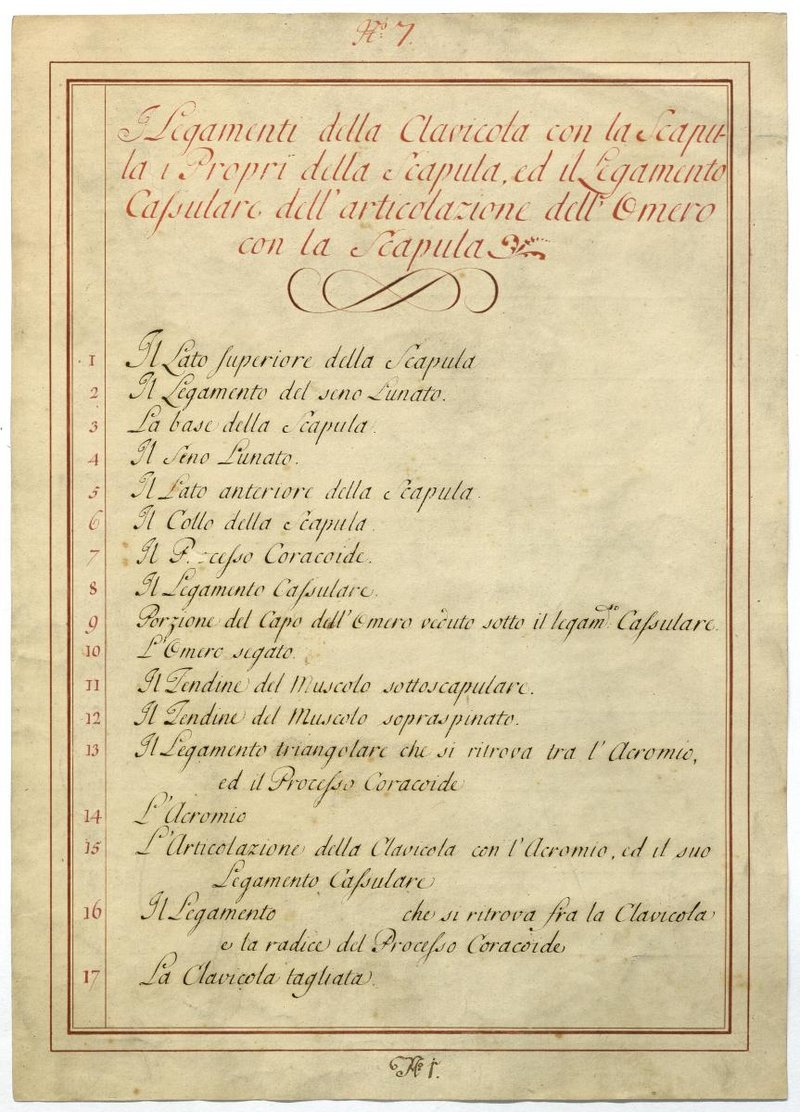 N.º 7.
I Legamenti della Clavicola con la Scapu-
la i Proprï della Scapula, ed il Legamento
Caſsulare dell'articolazione dell'Omero
con la Scapula
1 Il Lato ſuperiore della Scapula
2 Il Legamento del seno Lunato.
3 La base della Scapula.
4 Il Seno Lunato.
5 Il Lato anteriore della Scapula.
6 Il Collo della Scapula.
7 Il Coracoide.
8 Il Legamento Caſsulare.
9 Porzione del Capo dell'Omero sotto il legam.to Caſsulare.
10 L'Omero segato.
11 Il Tendine del Muscolo sottoscapulare.
12 Il Tendine del Muscolo sopraspinato.
13 Il Legamento triangolare che si ritrova tra l'Acromio,
ed il Proceſso Coracoide
14 L'Acromio
15 L'Articolazione della Clavicola con l'Acromio, ed il suo
Legamento Caſsulare
16 Il Legamento che si ritrova fra la Clavicola
e la radice del Proceſso Coracoide
17 La Clavicola tagliata.
N.º 1.